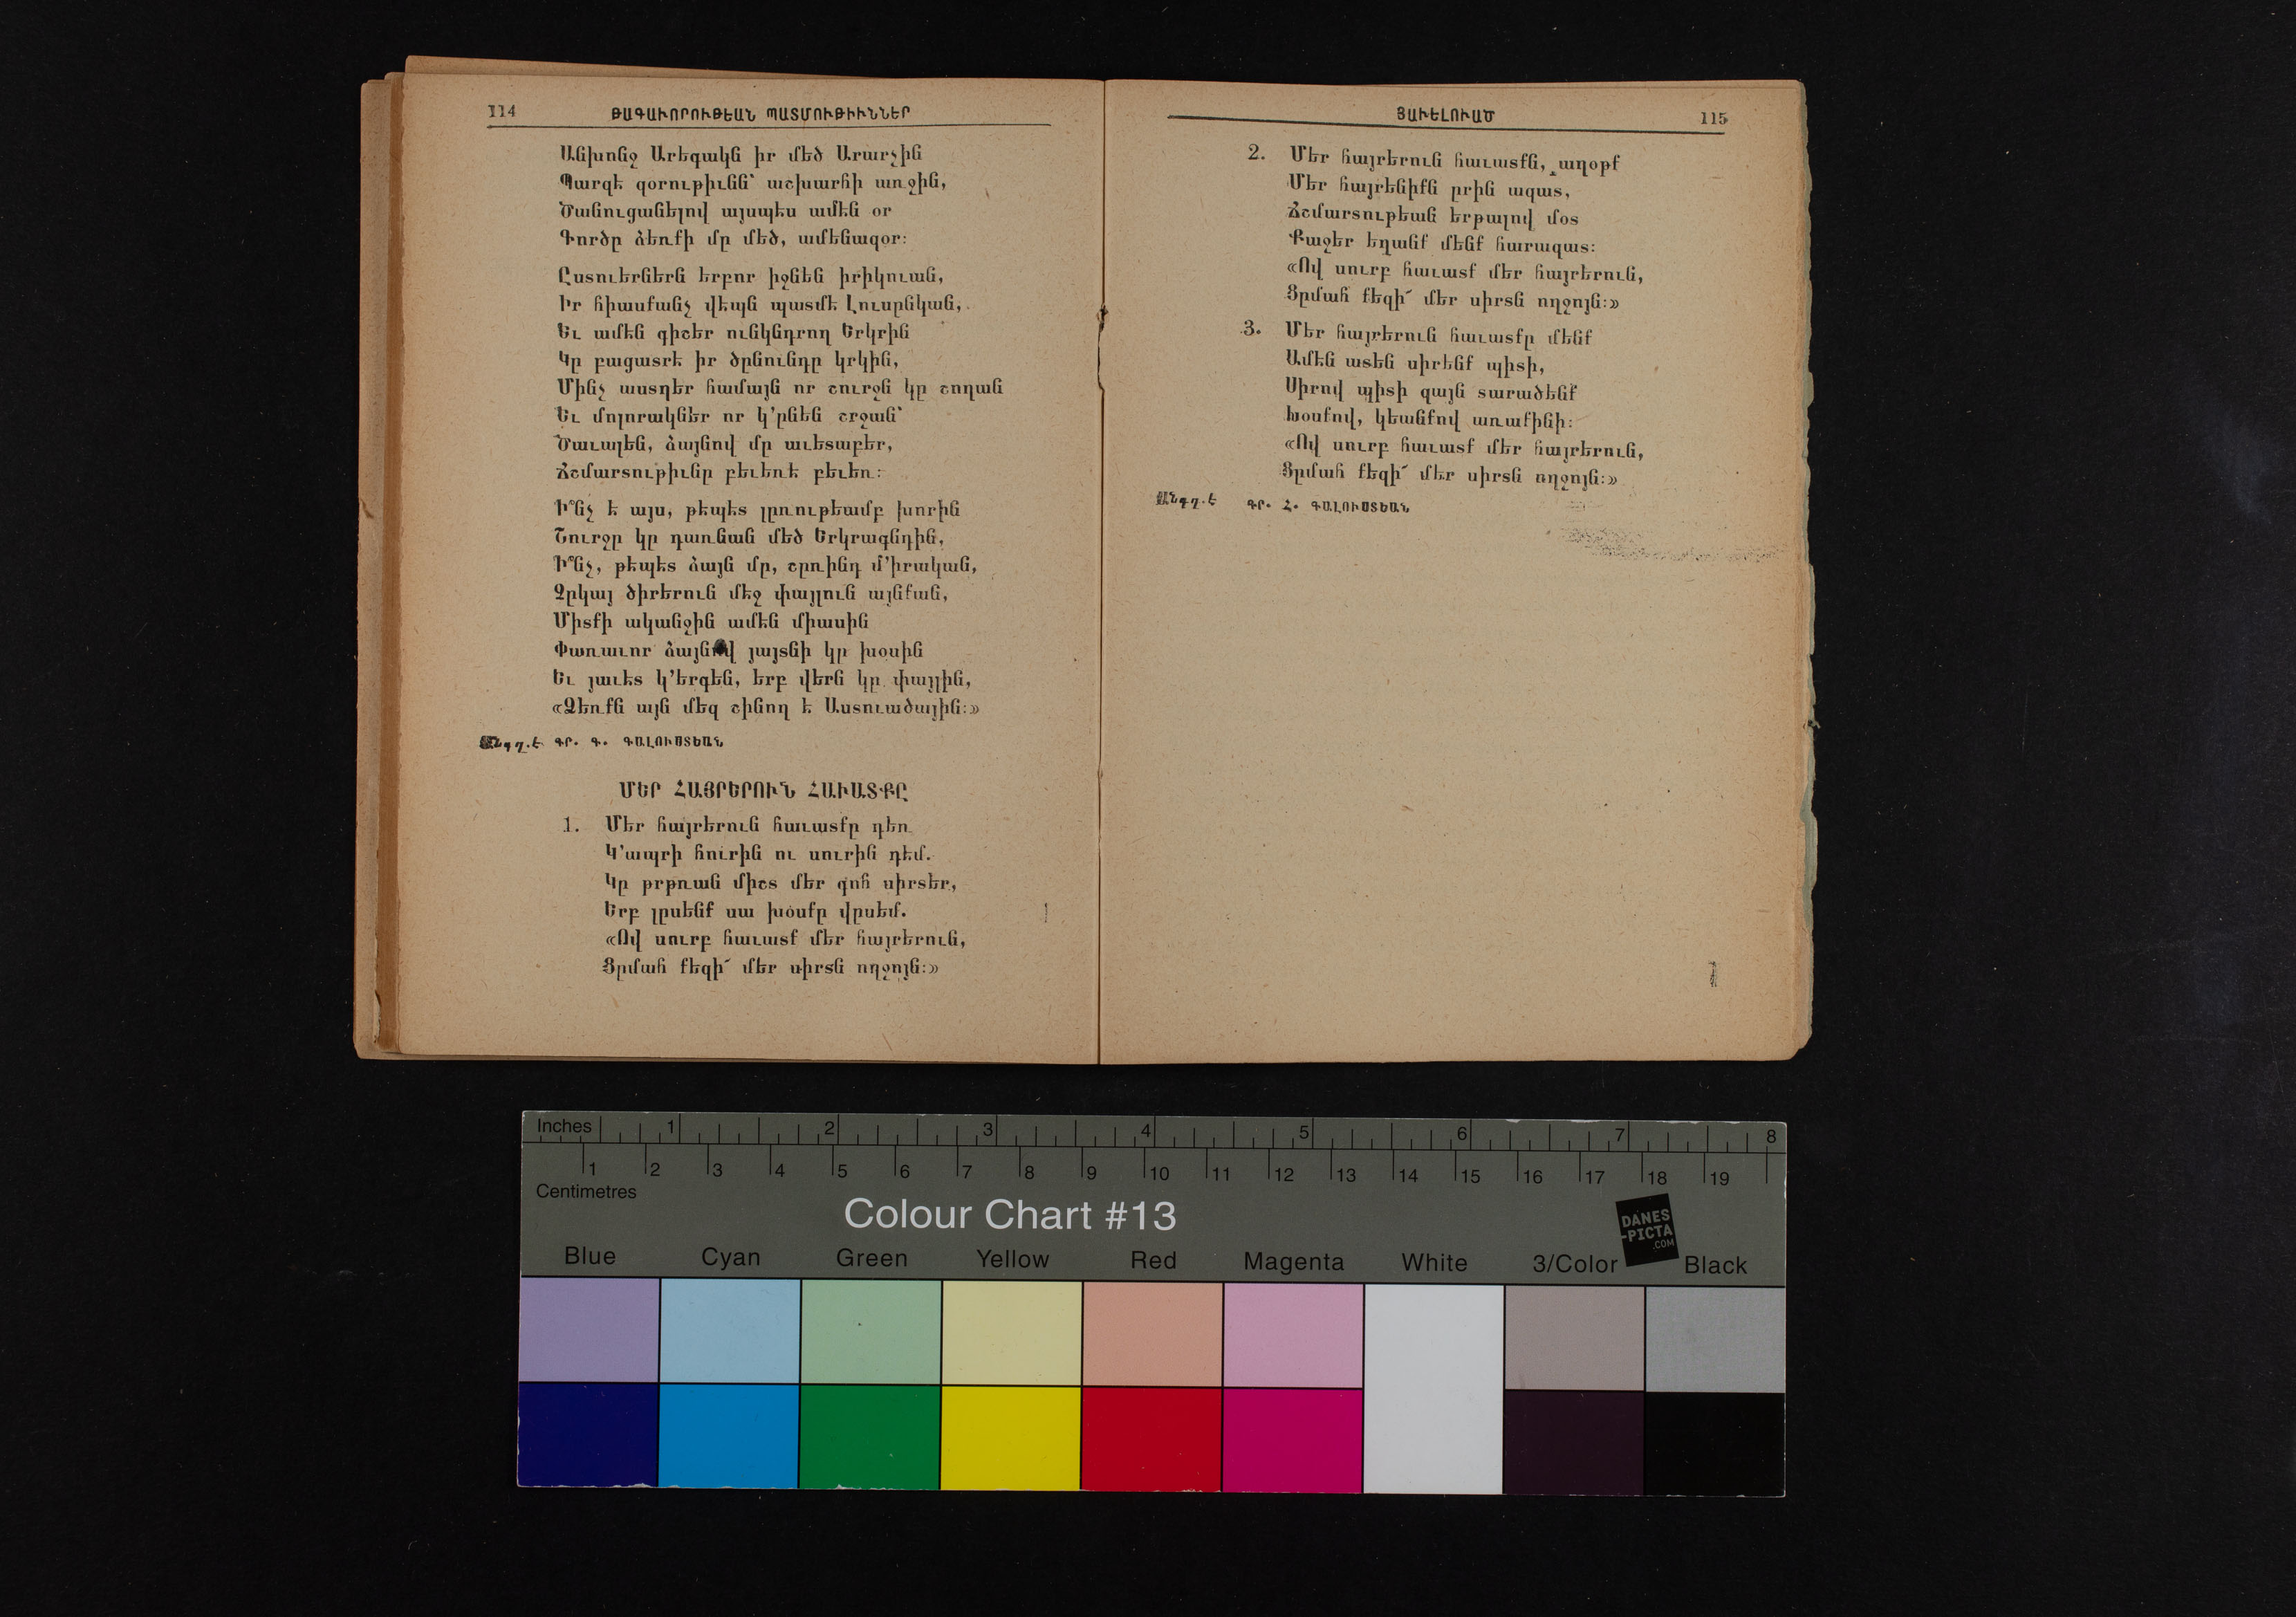 114 ԹԱԳԱՒՈՐՈՒԹԵԱՆ ՊԱՏՄՈՒԹԻՒՆՆԵՐ
Անխոնջ Արեգակն իր մեծ Արարչին
Պարզէ զօրութիւնն՝ աշխարհի առջին,
Ծանուցանելով այսպէս ամէն օր
Գործը ձեռքի մը մեծ, ամենազօր։
Ըստուերներն երբոր իջնեն իրիկուան,
Իր հիասքանչ վէպն պատմէ Լուսընկան,
Եւ ամէն գիշեր ունկնդրող Երկրին
Կը բացատրէ իր ծընունդը կրկին,
Մինչ աստղեր համայն որ շուրջն կը շողան
Եւ մոլորակներ որ կ՚ընեն շրջան՝
Ծաւալեն, ձայնով մը աւետաբեր,
Ճշմարտութիւնը բեւեռէ բեւեռ։
Ի՞նչ է այս, թէպէտ լըռութեամբ խորին
Շուրջը կը դառնան մեծ Երկրագնդին,
Ի՞նչ, թէպէտ ձայն մը, շըռինդ մ՚իրական,
Չըկայ ծիրերուն մէջ փայլուն այնքան,
Միտքի ականջին ամէն միասին
Փառաւոր ձայնով յայտնի կը խօսին
Եւ յաւէտ կ՚երգեն, երբ վերն կը փայլին,
«Ձեռքն այն մեզ շինող է Աստուածային։»
Անգղ.է ԳՐ. Գ. ԳԱԼՈՒՍՏԵԱՆ
ՄԵՐ ՀԱՅՐԵՐՈՒՆ ՀԱՒԱՏՔԸ
1. Մեր հայրերուն հաւատքը դեռ
Կ՚ապրի հուրին ու սուրին դէմ.
Կը թրթռան միշտ մեր գոհ սիրտեր,
Երբ լըսենք սա խօսքը վըսեմ.
«Ով սուրբ հաւատք մեր հայրերուն,
Ցըմահ քեզի՜ մեր սիրտն ողջոյն։»
ՅԱՒԵԼՈՒԱԾ 115
2. Մեր հայրերուն հաւատքն, աղօթք
Մեր հայրենիքն ըրին ազատ,
Ճշմարտութեան երթալով մօտ
Քաջեր եղանք մենք հարազատ։
«Ով սուրբ հաւատք մեր հայրերուն,
Ցըմահ քեզի՜ մեր սիրտն ողջոյն։»
3. Մեր հայրերուն հաւատքը մենք
Ամէն ատեն սիրենք պիտի,
Սիրով պիտի զայն տարածենք
Խօսքով, կեանքով առաքինի։
«Ով սուրբ հաւատք մեր հայրերուն,
Ցըմահ քեզի՜ մեր սիրտն ողջոյն։»
Անգղ.է ԳՐ. Հ. ԳԱԼՈՒՍՏԵԱՆ
Inches 1 2 3 4 5 6 7 8
1 2 3 4 5 6 7 8 9 10 11 12 13 14 15 16 17 18 19
Centimetres
Colour Chart #13
DANES
-PICTA
.COM
Blue Cyan Green Yellow Red Magenta White 3/Color Black